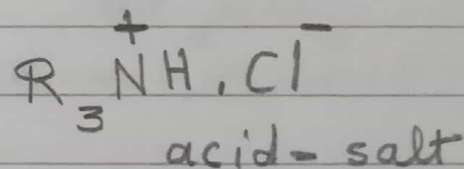 R₃N⁺H, Cl⁻
acid - salt